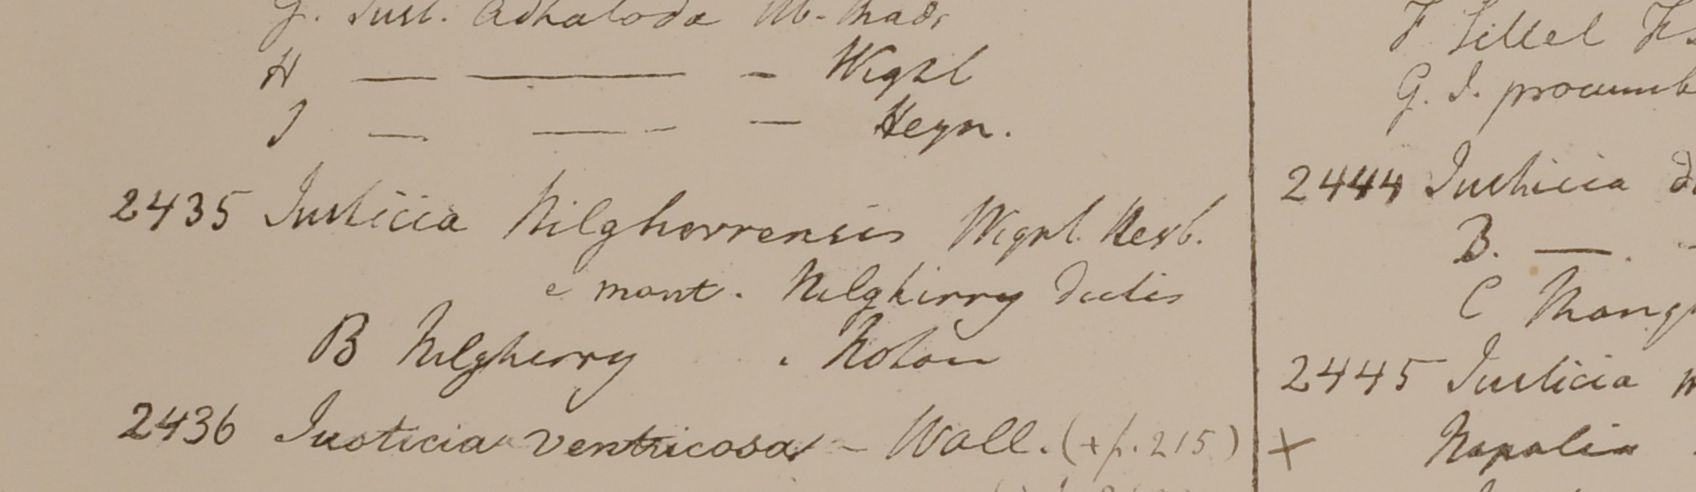 G. Just. Adhatoda Hb. Madr
H — — — Wight
J — — — Heyn.
2435 Justicia Nilgherrensis Wight. Herb.
e mont. Nilghirry dictis
B Nilgherry . Noton
2436 Justicia ventricosa - Wall. (+ p. 215)
F Sillet
G. J. procumb
2444 Justicia
B. —
C Mang
2445 Justicia
+ Napalia